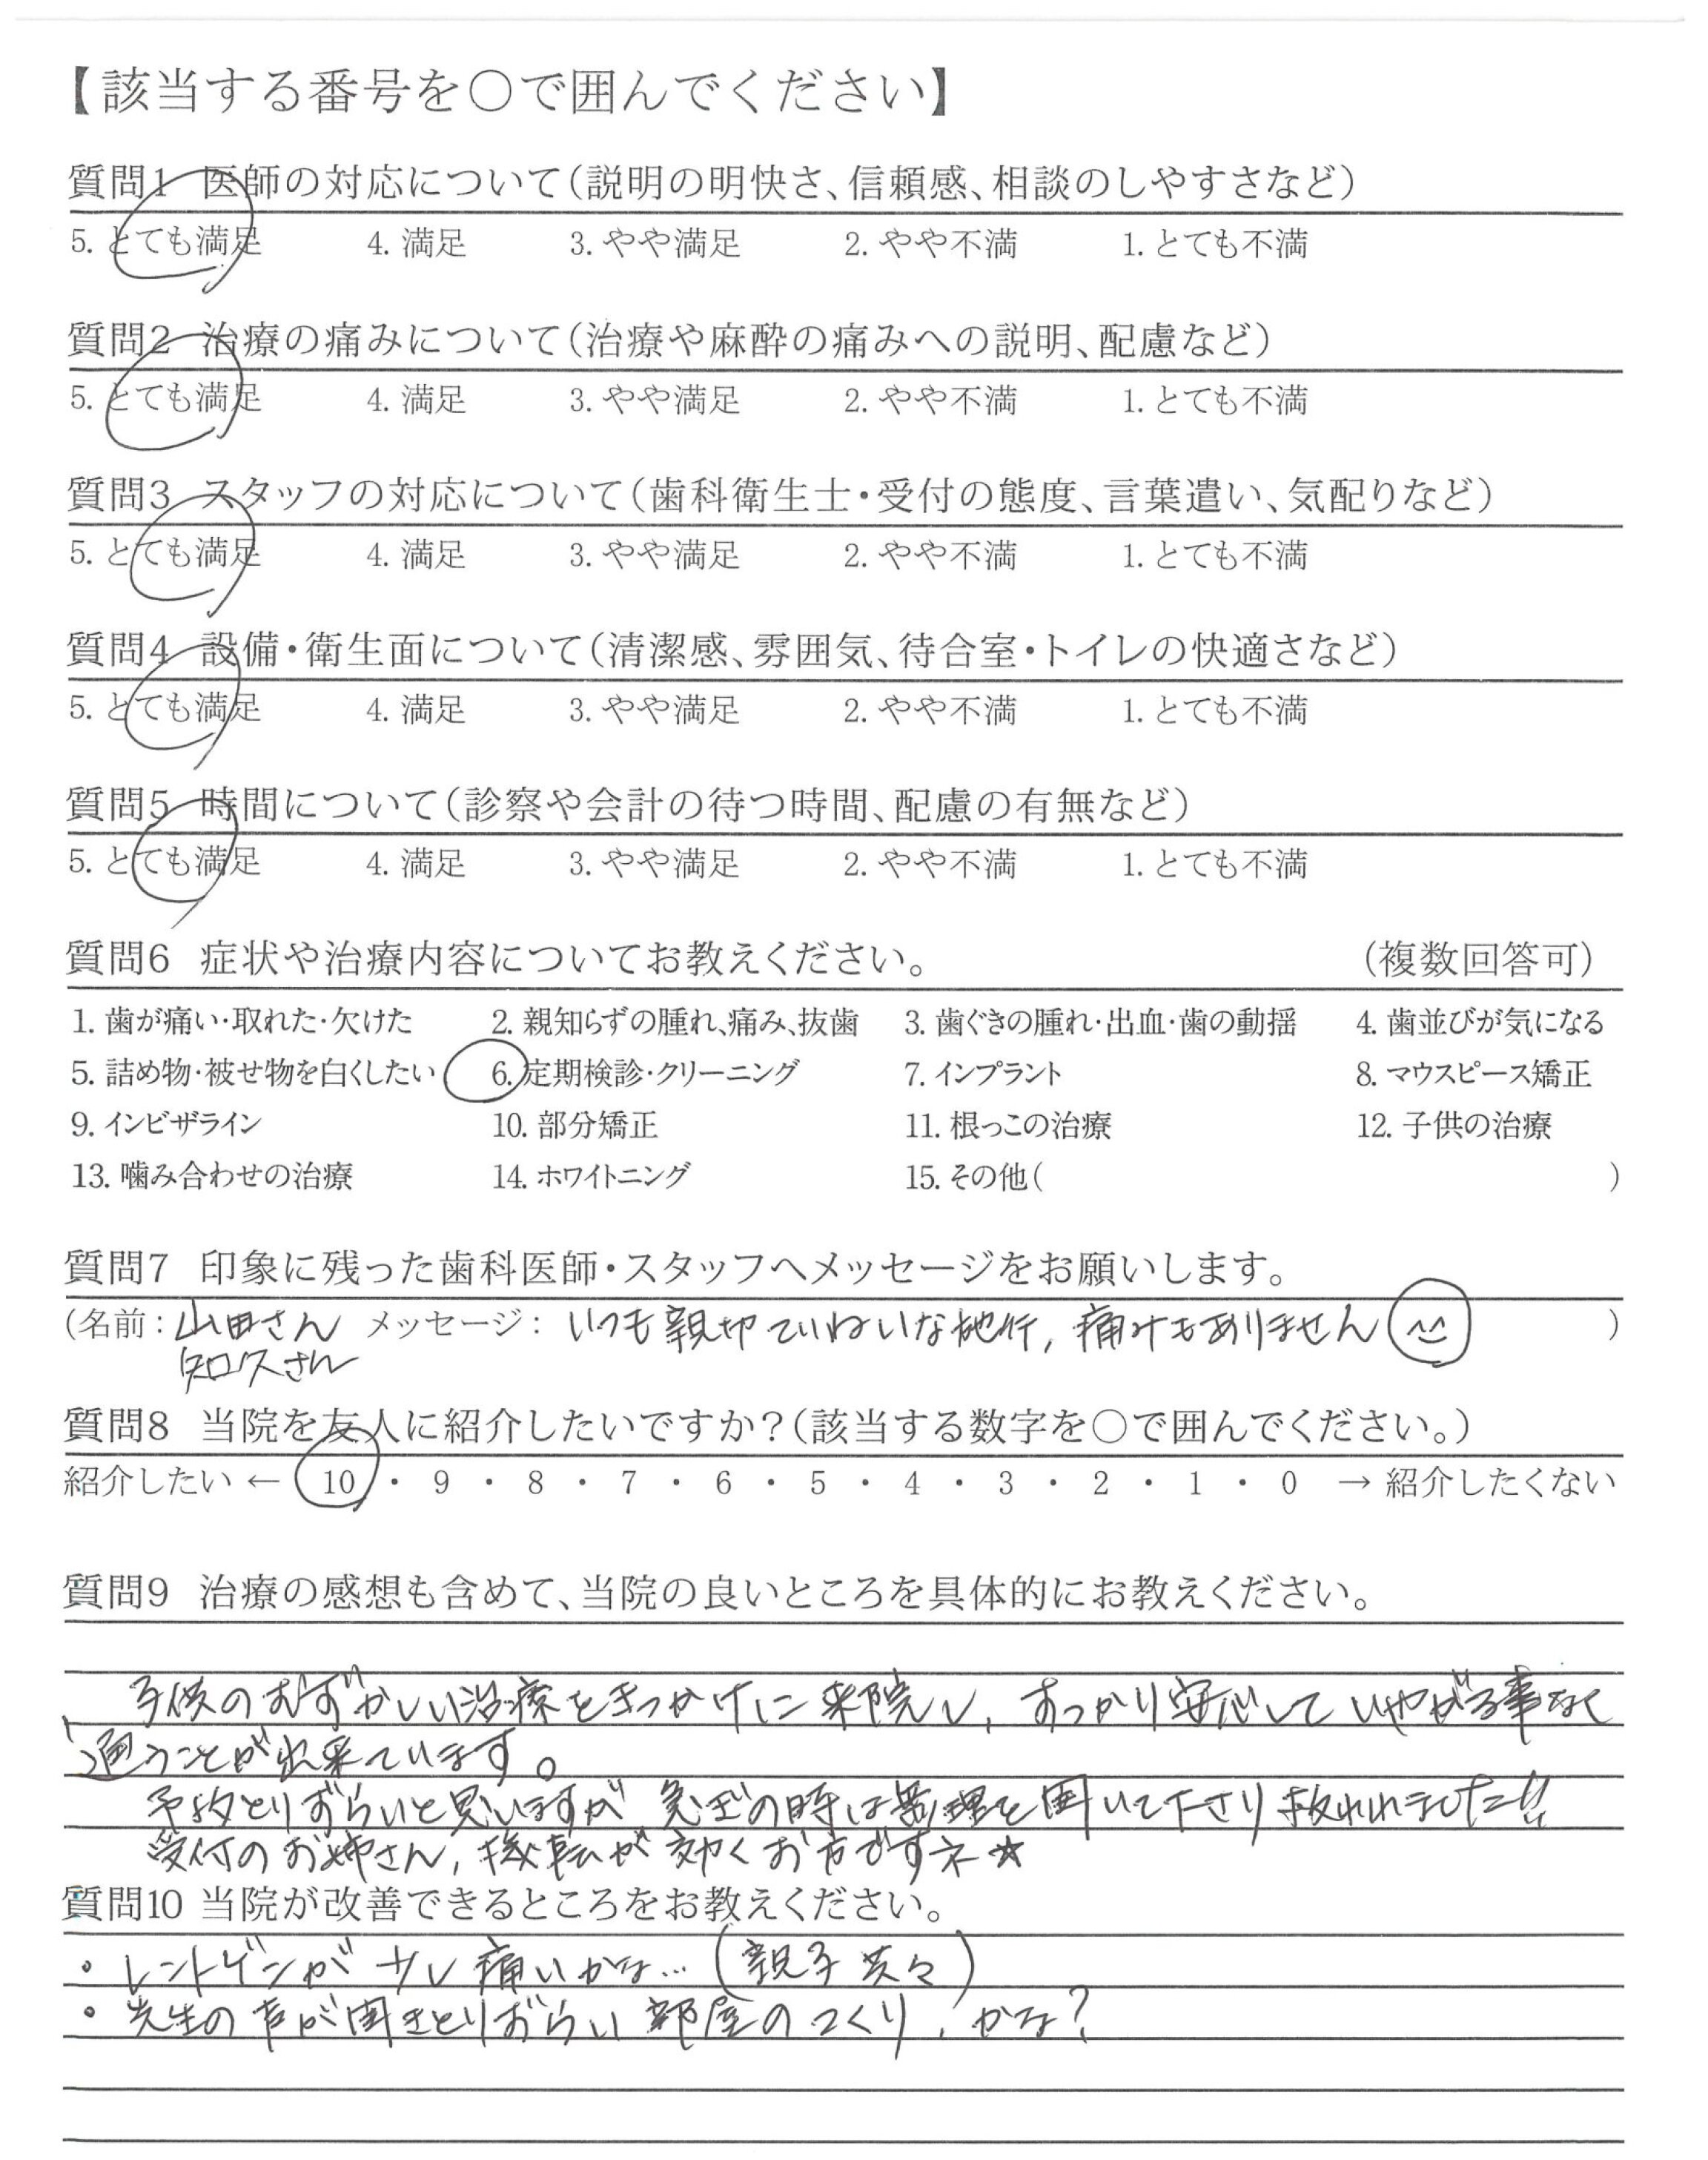 【該当する番号を〇で囲んでください】
質問1 医師の対応について(説明の明快さ、信頼感、相談のしやすさなど)
5. とても満足 4. 満足 3. やや満足 2. やや不満 1. とても不満
質問2 治療の痛みについて(治療や麻酔の痛みへの説明、配慮など)
5. とても満足 4. 満足 3. やや満足 2. やや不満 1. とても不満
質問3 スタッフの対応について(歯科衛生士・受付の態度、言葉遣い、気配りなど)
5. とても満足 4. 満足 3. やや満足 2. やや不満 1. とても不満
質問4 設備・衛生面について(清潔感、雰囲気、待合室・トイレの快適さなど)
5. とても満足 4. 満足 3. やや満足 2. やや不満 1. とても不満
質問5 時間について(診察や会計の待つ時間、配慮の有無など)
5. とても満足 4. 満足 3. やや満足 2. やや不満 1. とても不満
質問6 症状や治療内容についてお教えください。 (複数回答可)
1. 歯が痛い・取れた・欠けた 2. 親知らずの腫れ、痛み、抜歯 3. 歯ぐきの腫れ・出血・歯の動揺 4. 歯並びが気になる
5. 詰め物・被せ物を白くしたい 6. 定期検診・クリーニング 7. インプラント 8. マウスピース矯正
9. インビザライン 10. 部分矯正 11. 根っこの治療 12. 子供の治療
13. 噛み合わせの治療 14. ホワイトニング 15. その他( )
質問7 印象に残った歯科医師・スタッフへメッセージをお願いします。
(名前: 山田さん メッセージ: いつも親切ていねいな施行, 痛みもありません )
さん
質問8 当院を友人に紹介したいですか?(該当する数字を〇で囲んでください。)
紹介したい ← 10 ・ 9 ・ 8 ・ 7 ・ 6 ・ 5 ・ 4 ・ 3 ・ 2 ・ 1 ・ 0 → 紹介したくない
質問9 治療の感想も含めて、当院の良いところを具体的にお教えください。
子供のむずかしい治療をきっかけに来院し, すっかり安心していやがる事なく
通うことが出来ています。
予約とりずらいと思いますが 急ぎの時は無理を聞いて下さり 救われました!!
受付のお姉さん, 機転が効くお方ですネ☆
質問10 当院が改善できるところをお教えください。
・レントゲンが 少し痛いかな… (親子共々)
・先生の声が聞きとりずらい 部屋のつくり, かな?